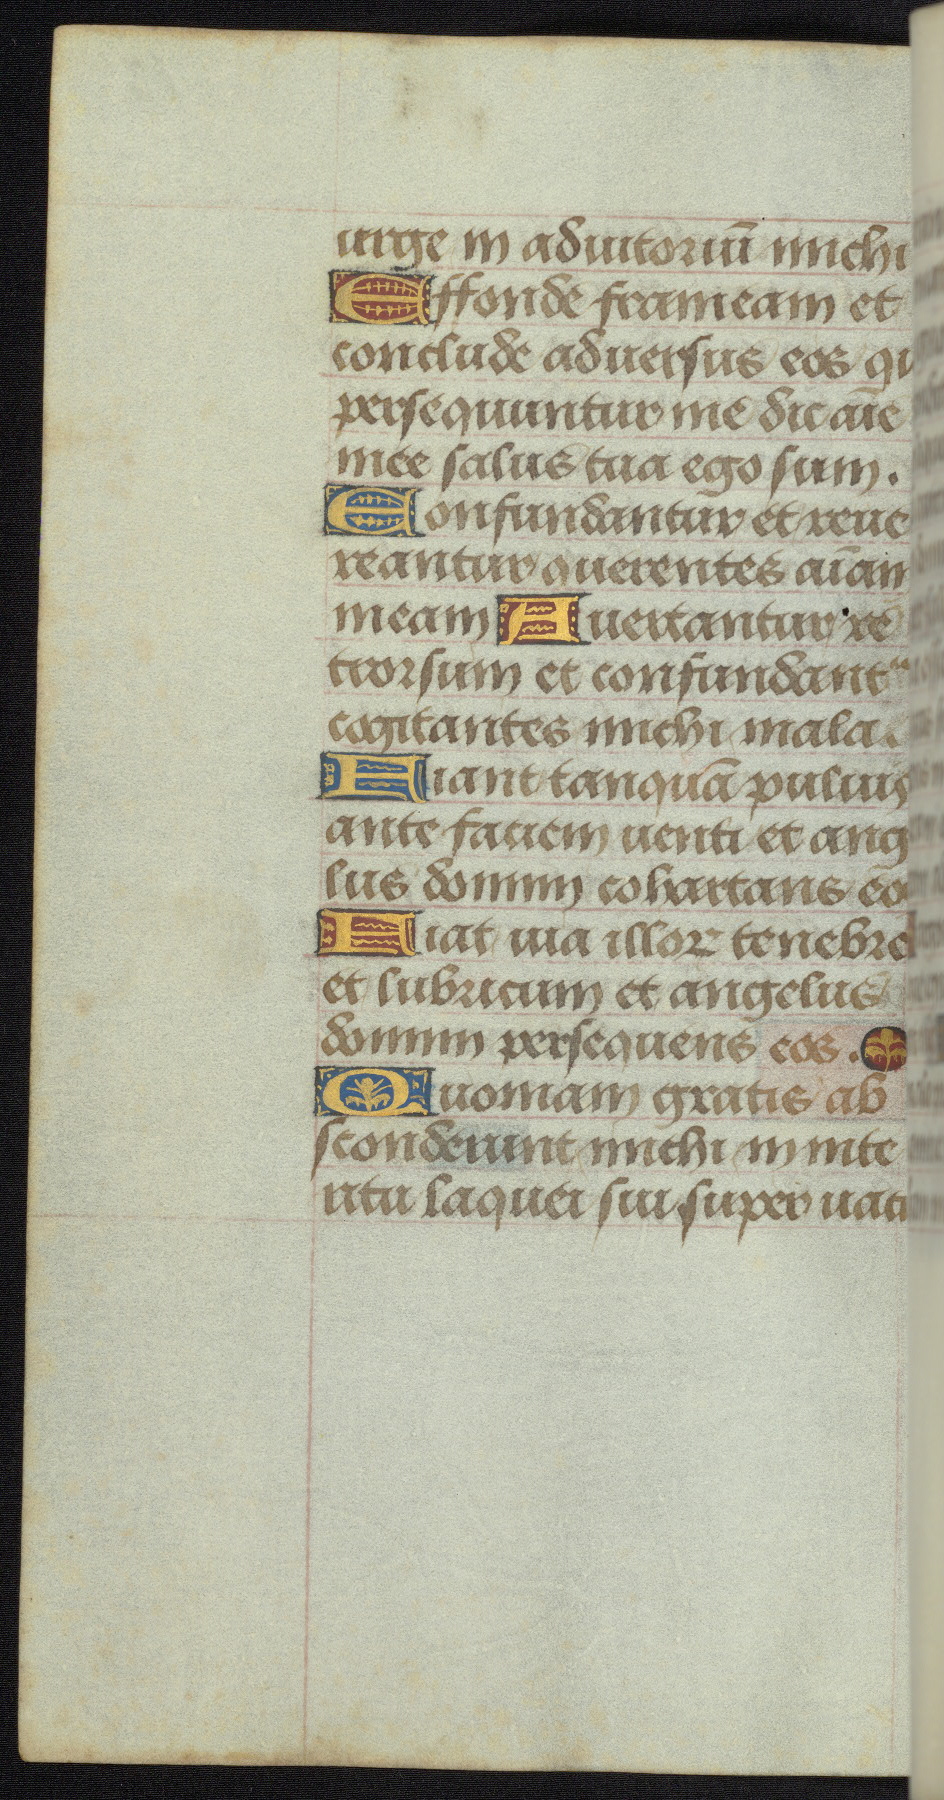 urge in adiutoriū michi
Effonde frameam et
conclude aduersus eos qu
persequuntur me dic aīe
mee salus tua ego sum.
Confundantur et reue
reantur querentes aīam
meam Auertantur re
trorsum et confundant᷑
cogitantes michi mala.
Fiant tanquā puluis
ante faciem uenti et ang
lus domini cohartans eo
Fiat uia illoꝝ tenebre
et lubricum et angelus
domini persequens eos.
Quoniam gratis ab
sconderunt michi in inte
ritu laquei sui super uac